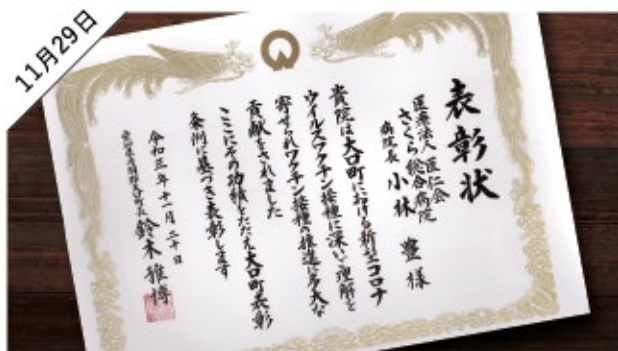 11月29日
表彰状
医療法人 医仁会
さくら総合病院
病院長 小林 豊 様
貴院は大口町における新型コロナ
ウイルスワクチン接種に深いご理解を
寄せられワクチン接種の推進に多大な
貢献をされました
ここにその功績をたたえ大口町表彰
条例に基づき表彰します
令和三年十一月二十日
愛知県丹羽郡大口町長 鈴木雅博